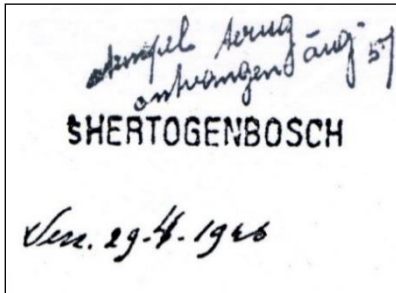 stempel terug
ontvangen aug 57
SHERTOGENBOSCH
Verz. 29-4-1946